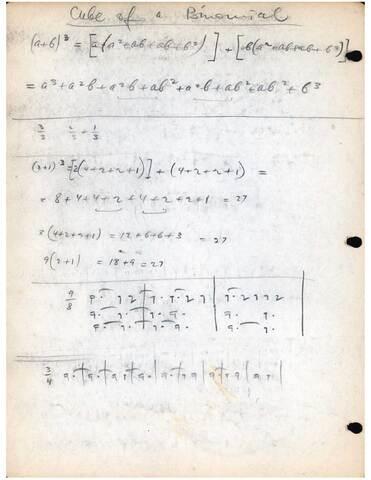 Cube of a Binomial
(a+b)³ = [a(a²+ab+ab+b²)] + [b(a²+ab+ab+b²)]
= a³+a²b+a²b+ab²+a²b+ab²+ab²+b³
3/3 2/3 + 1/3
(2+1)³ = [2(4+2+2+1)] + (4+2+2+1) =
= 8+4+4+2+4+2+2+1 = 27
3(4+2+2+1) = 12+6+6+3 = 27
9(2+1) = 18+9 = 27
9/8
3/4